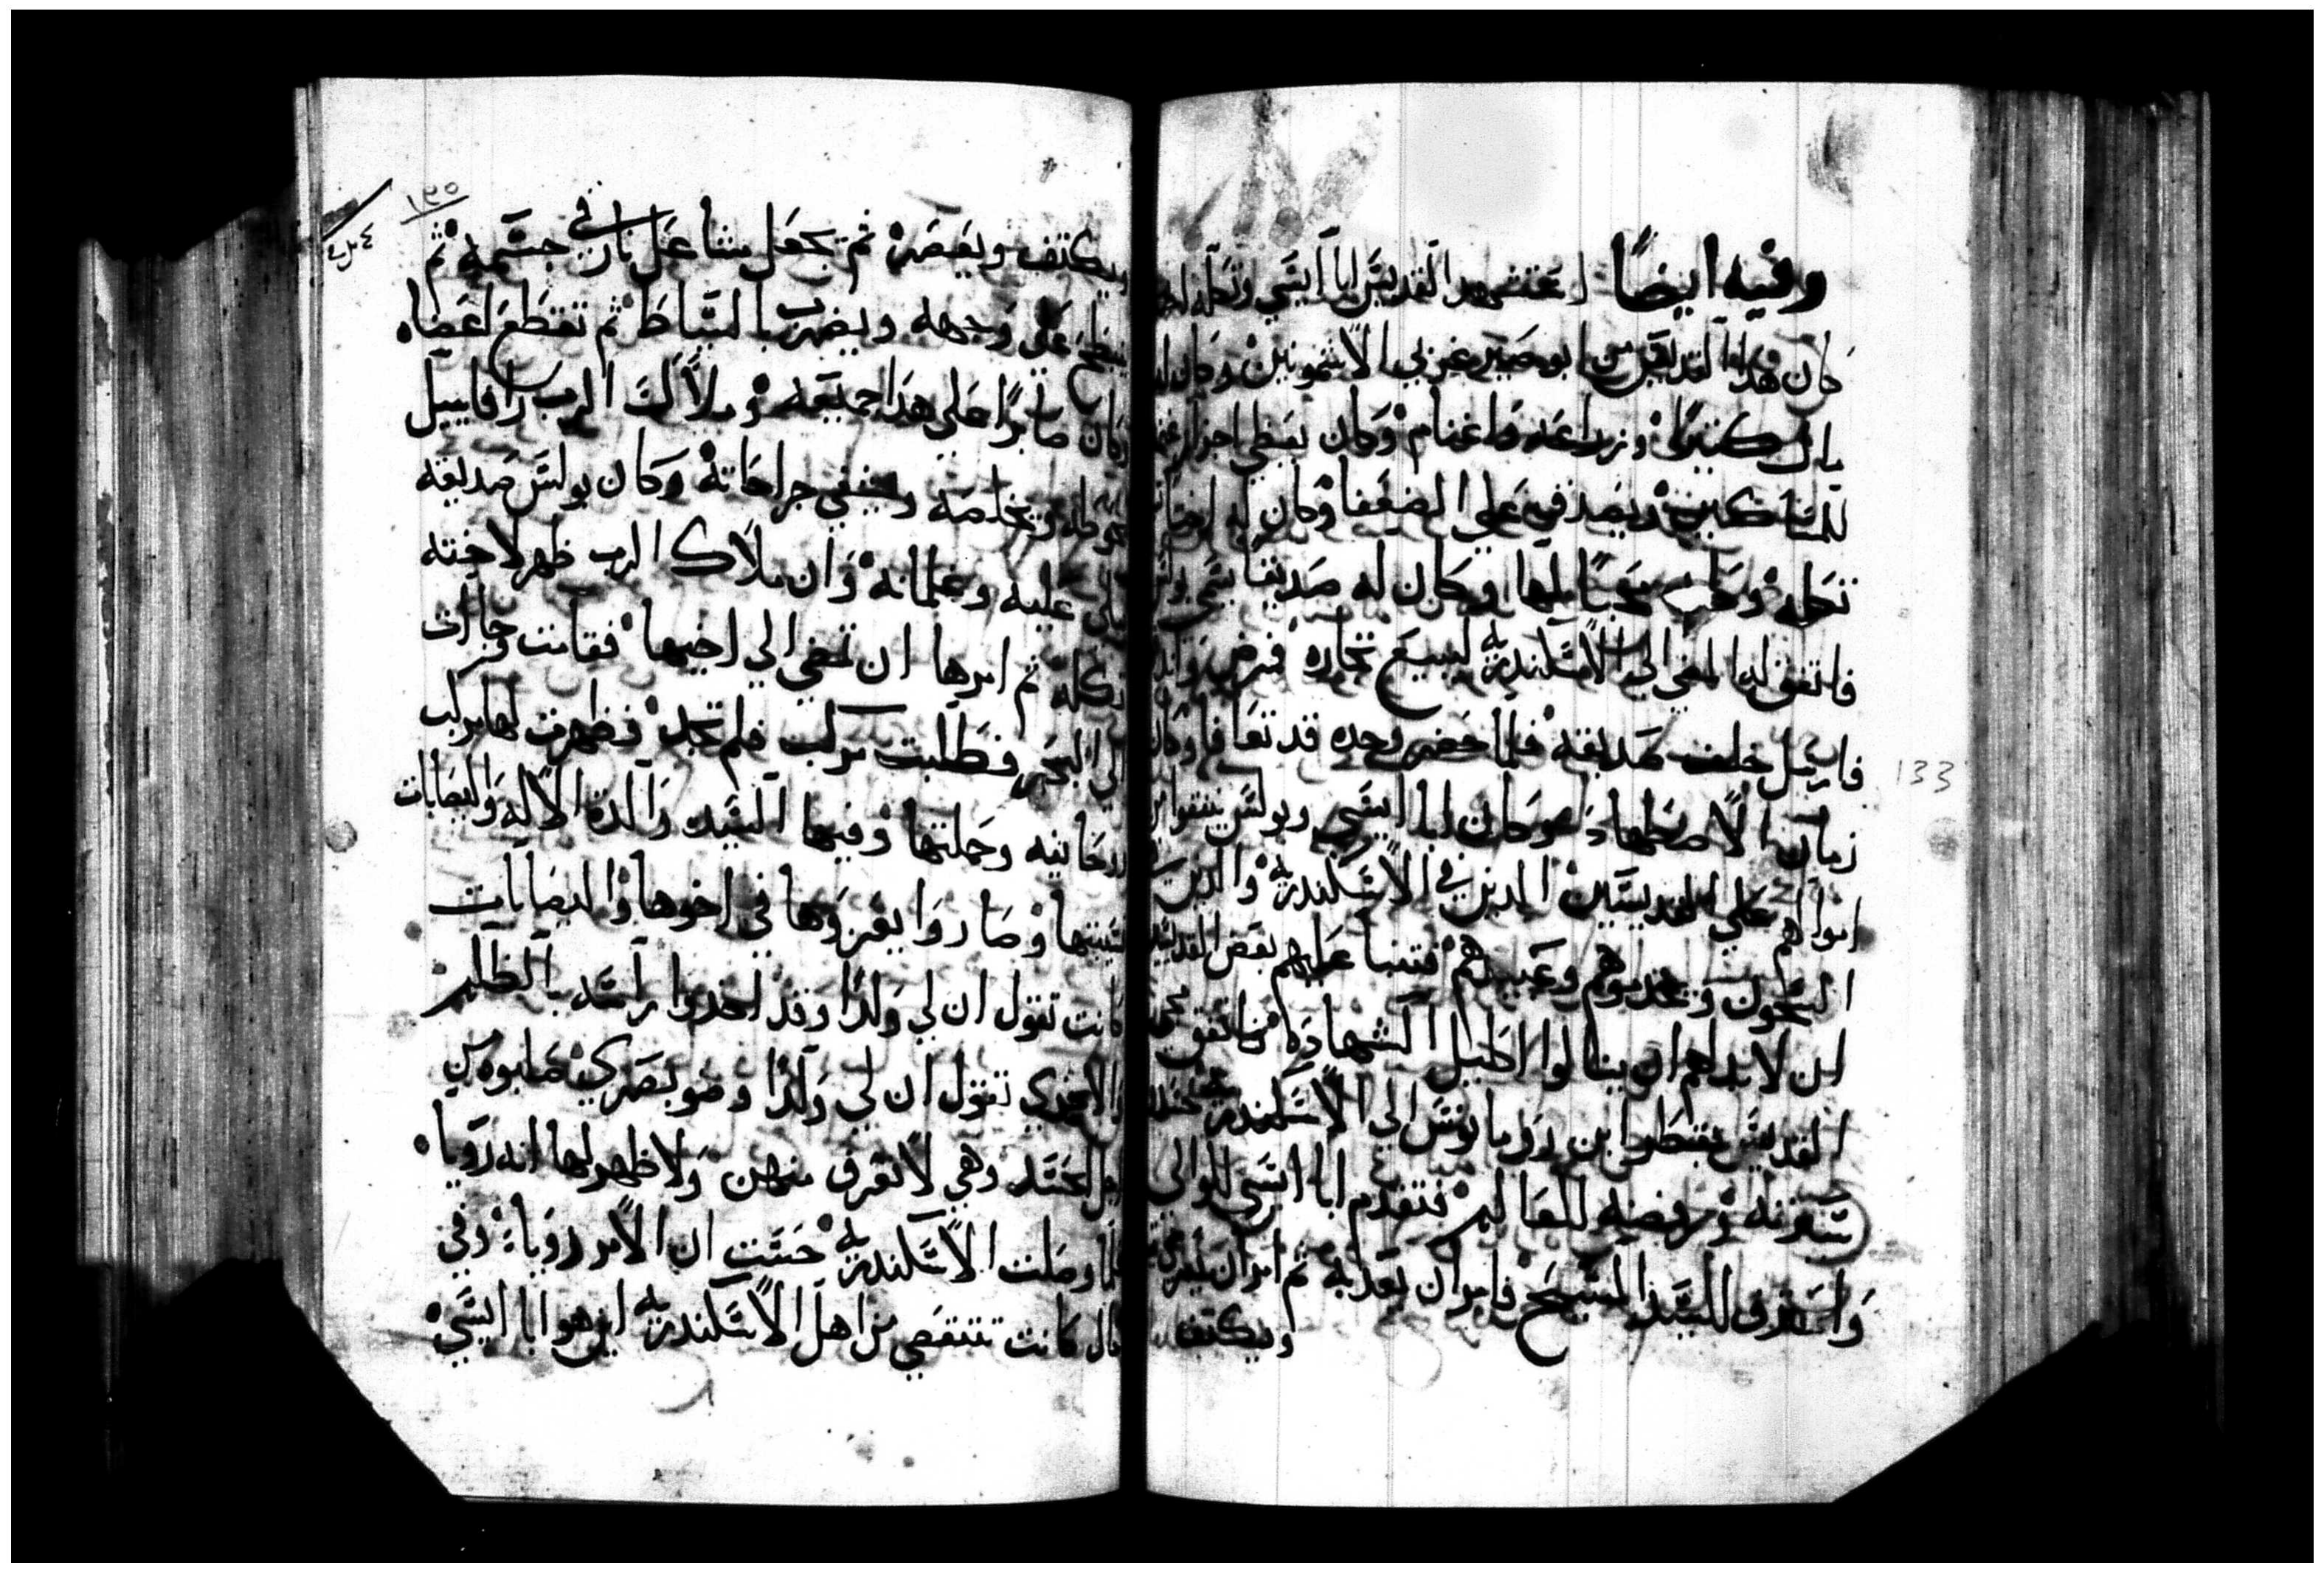 وفيه ايضًا استشهد القديس ابا ايسي وتكله اخته
كان هدا القديس من ابو صير غربي الاشمونين وكان له
مال كتير وزراعه واغنام وكان يعطي اجزاز غنمه
للمساكين ويصدقه علي الضعفا وكان له اخت
تكله وكان محبًا لها وكان له صديق يسمي بولس
فاتفق له المضي الي الاسكندرية ليبيع تجاره فمرض
فارسل خلف صديقه فلما حضر وجده قد تعافا وكان
زمان الاضطهاد وكان ابا ايسي وبولس
اموالهم علي القديسين الدين في الاسكندرية والدين
السجون ويخدموهم وعبيدهم فتنبا عليهم بعض القديسين
ان لابد لهم ان ينالوا اكليل الشهادة فاتفق
القديس بقطر ابن رومانوس الي الاسكندرية
سفرته ورفضه للعالم فتقدم ابا ايسي للوالي
واعترف للسيد المسيح فامر ان يعدبه ثم امر ان
ويكتف
133
١٣٥
ويكتف ويعصر ثم تجعل مشاعل نار في جسمه ثم
يبطح علي وجهه ويضرب بالسياط ثم تقطع اعضاه
وكان صابرًا علي هدا جميعه وملاك الرب رافاييل
ويخلصه ويشفي جراحاته وكان بولس صديقه
عليه وغلمانه وان ملاك الرب ظهر لاخته
تكله ثم امرها ان تمضي الي اخيها فقامت وجاات
الي البحر فطلبت مركب فلم تجد فظهرت لها مركب
وحملتها وفيها السيده والدة الاله واليصابات
وصاروا يعزوها في اخوها واليصابات
كانت تقول ان لي ولدًا وقد اخدوا راسه بالظلم
والاخري تقول ان لي ولدًا وهو بصري صلبوه من
اجل الحسد وهي لا تعرف منهن ولا ظهر لها انه رويا
فلما وصلت الاسكندرية حست ان الامر رويا وفي
كانت تتقصي من اهل الاسكندرية اين هو ابا ايسي